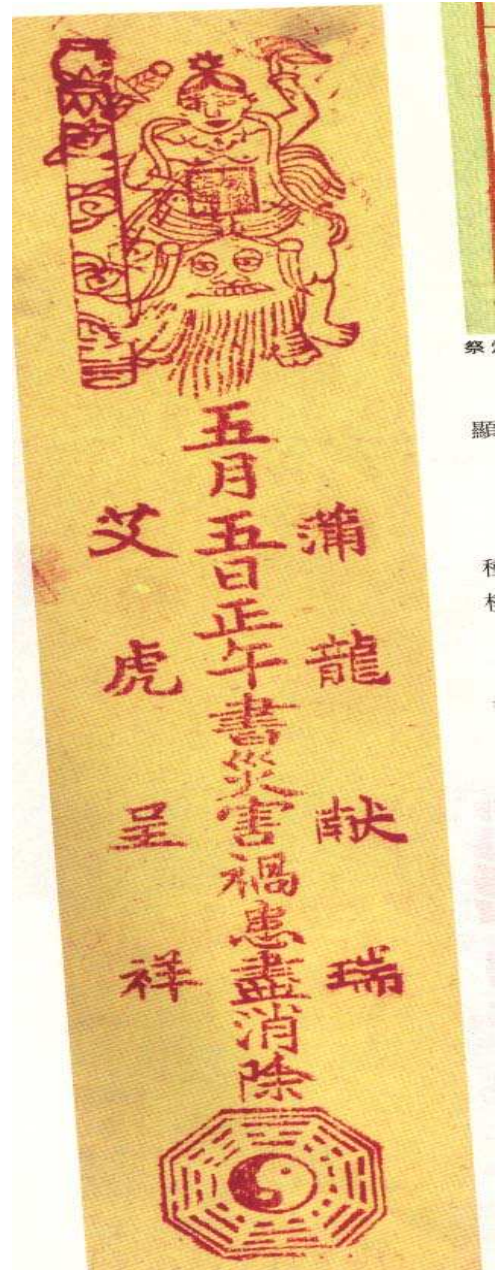 蒲龍献瑞
五月五日正午書災害禍患盡消除
艾虎呈祥
祭
顯